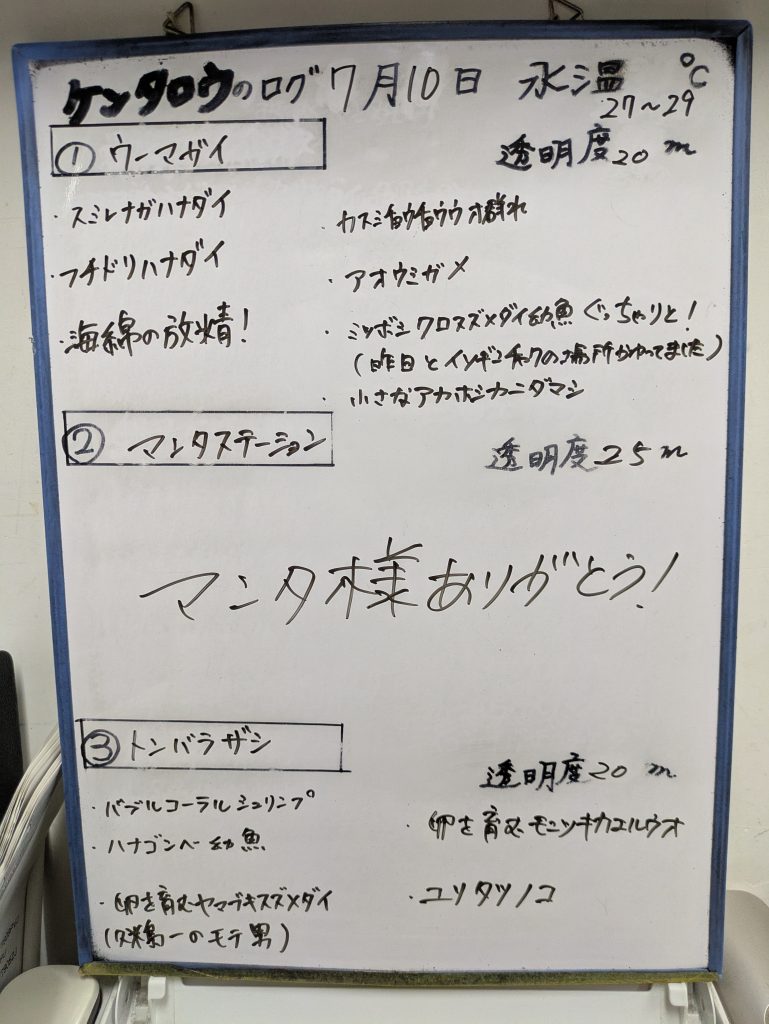 ケンタロウのログ 7月10日 水温 ℃
27〜29
① ウーマガイ
透明度20m
・スミレナガハナダイ
・フチドリハナダイ
・海綿の放精!
・カスミチョウチョウウオ群れ
・アオウミガメ
・ミツボシクロスズメダイ幼魚ぐっちゃりと!
(昨日とイソギンチャクの場所かわってました)
・小さなアカホシカニダマシ
② マンタステーション
透明度25m
マンタ様ありがとう!
③ トンバラザシ
透明度20m
・バブルコーラルシュリンプ
・ハナゴンベ幼魚
・卵を育むヤマブキスズメダイ
(久米島一のモテ男)
・卵を育むモンツキカエルウオ
・ユリタツノコ